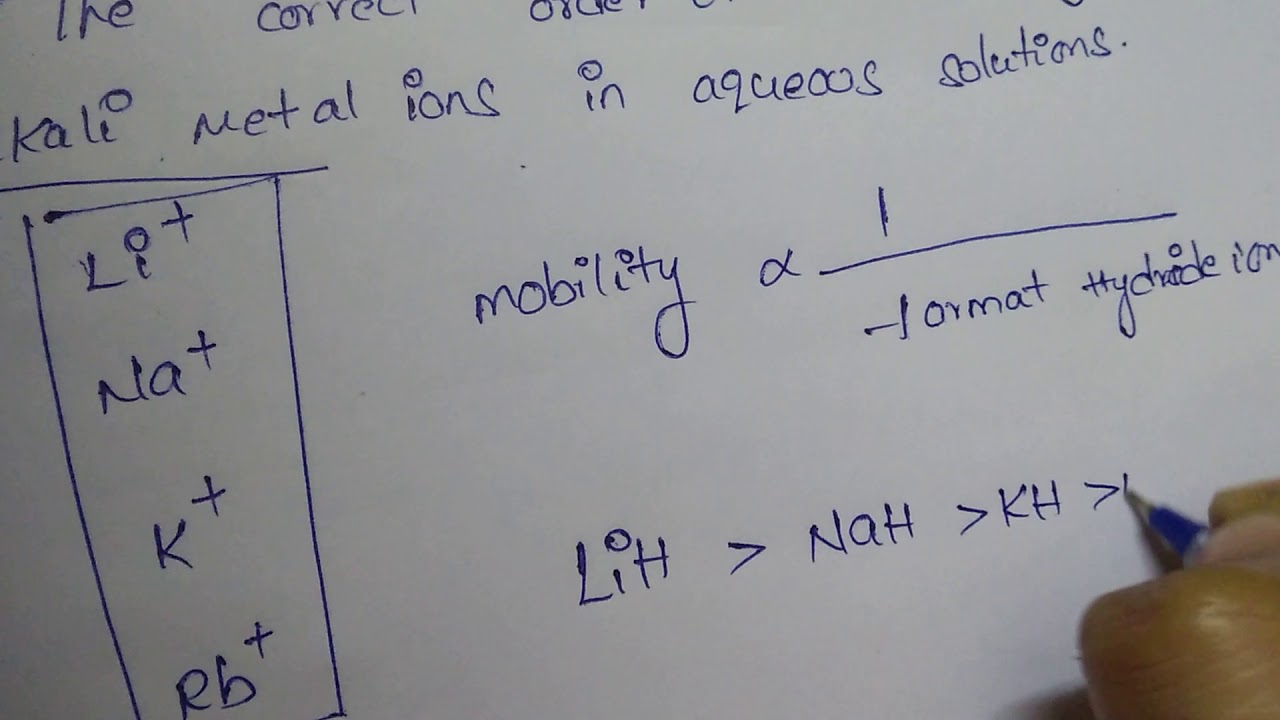 The correct order
Kali Metal ions in aqueous solutions.
Li+
Na+
K+
Rb+
mobility ∝ 1
format Hydride ion
LiH > NaH > KH >